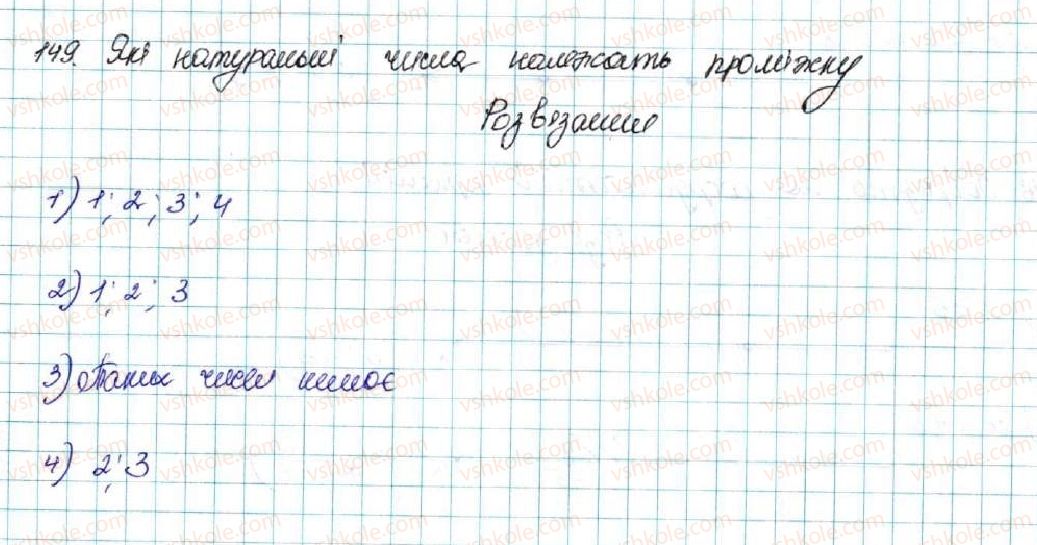 149. Які натуральні числа належать проміжку
Розвязання
1) 1; 2; 3; 4
2) 1; 2; 3
3) таких чисел немає
4) 2; 3